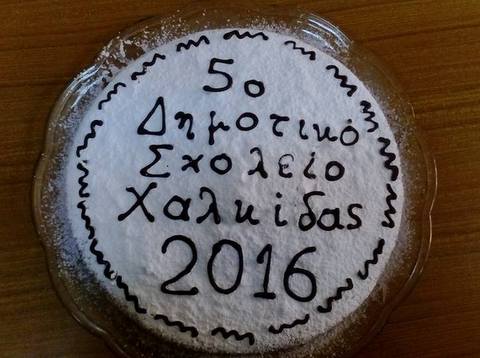 5ο
Δημοτικό
Σχολείο
Χαλκίδας
2016